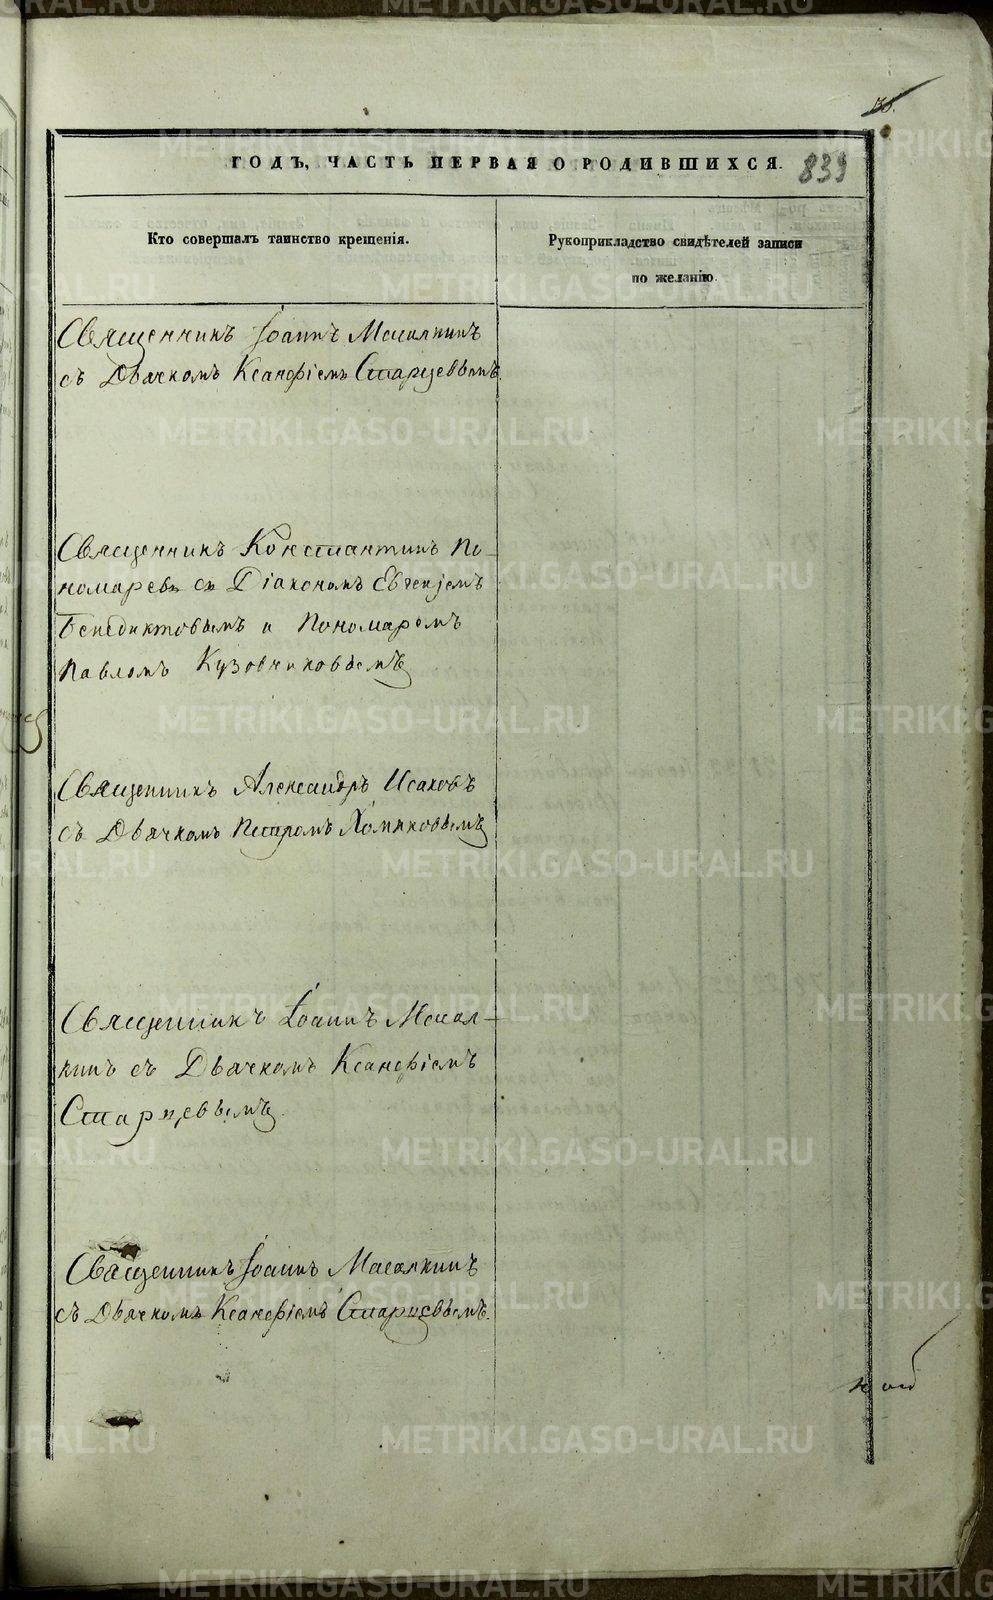 ГОДЪ, ЧАСТЬ ПЕРВАЯ О РОДИВШИХСЯ. 839
Кто совершалъ таинство крещенія.
Рукоприкладство свидѣтелей записи
по желанію.
Священникъ Іоаннъ Масалкинъ
съ Дьячкомъ Ксанѳіемъ Старцевымъ
Священникъ Константинъ По-
номаревъ съ Діакономъ Евгеніемъ
Бенедиктовымъ и Пономаремъ
Павломъ Кузовниковымъ
Священникъ Александръ Исаковъ
съ Дьячкомъ Петромъ Хомяковымъ
Священникъ Іоаннъ Масал-
кинъ съ Дьячкомъ Ксанѳіемъ
Старцевымъ.
Священникъ Іоаннъ Масалкинъ
съ Дьячкомъ Ксанѳіемъ Старцевымъ.
METRIKI.GASO-URAL.RU